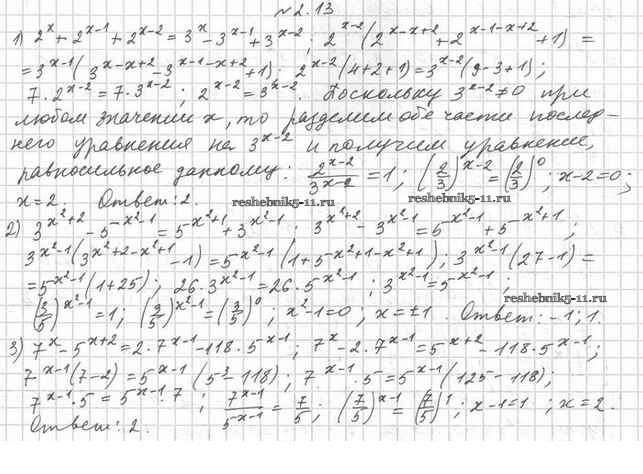 №2.13
1) 2^x + 2^{x-1} + 2^{x-2} = 3^x - 3^{x-1} + 3^{x-2}; 2^{x-2}(2^{x-x+2} + 2^{x-1-x+2} + 1) =
= 3^{x-1}(3^{x-x+2} - 3^{x-1-x+2} + 1); 2^{x-2}(4+2+1) = 3^{x-2}(9-3+1);
7·2^{x-2} = 7·3^{x-2}; 2^{x-2} = 3^{x-2}. Поскольку 3^{x-2} ≠ 0 при
любом значении x, то разделим обе части послед-
него уравнения на 3^{x-2} и получим уравнение,
равносильное данному: 2^{x-2}/3^{x-2} = 1; (2/3)^{x-2} = (2/3)^0; x-2=0;
x=2. Ответ: 2.
reshebnik5-11.ru
2) 3^{x²+2} - 5^{x²-1} = 5^{x²+1} + 3^{x²-1}; 3^{x²+2} - 3^{x²-1} = 5^{x²-1} + 5^{x²+1};
3^{x²-1}(3^{x²+2-x²+1} - 1) = 5^{x²-1}(1 + 5^{x²+1-x²+1}); 3^{x²-1}(27-1) =
= 5^{x²-1}(1+25); 26·3^{x²-1} = 26·5^{x²-1}; 3^{x²-1} = 5^{x²-1};
reshebnik5-11.ru
(3/5)^{x²-1} = 1; (3/5)^{x²-1} = (3/5)^0; x²-1=0; x=±1. Ответ: -1; 1.
3) 7^x - 5^{x+2} = 2·7^{x-1} - 118·5^{x-1}; 7^x - 2·7^{x-1} = 5^{x+2} - 118·5^{x-1};
7^{x-1}(7-2) = 5^{x-1}(5³-118); 7^{x-1}·5 = 5^{x-1}(125-118);
7^{x-1}·5 = 5^{x-1}·7; 7^{x-1}/5^{x-1} = 7/5; (7/5)^{x-1} = (7/5)^1; x-1=1; x=2.
Ответ: 2.